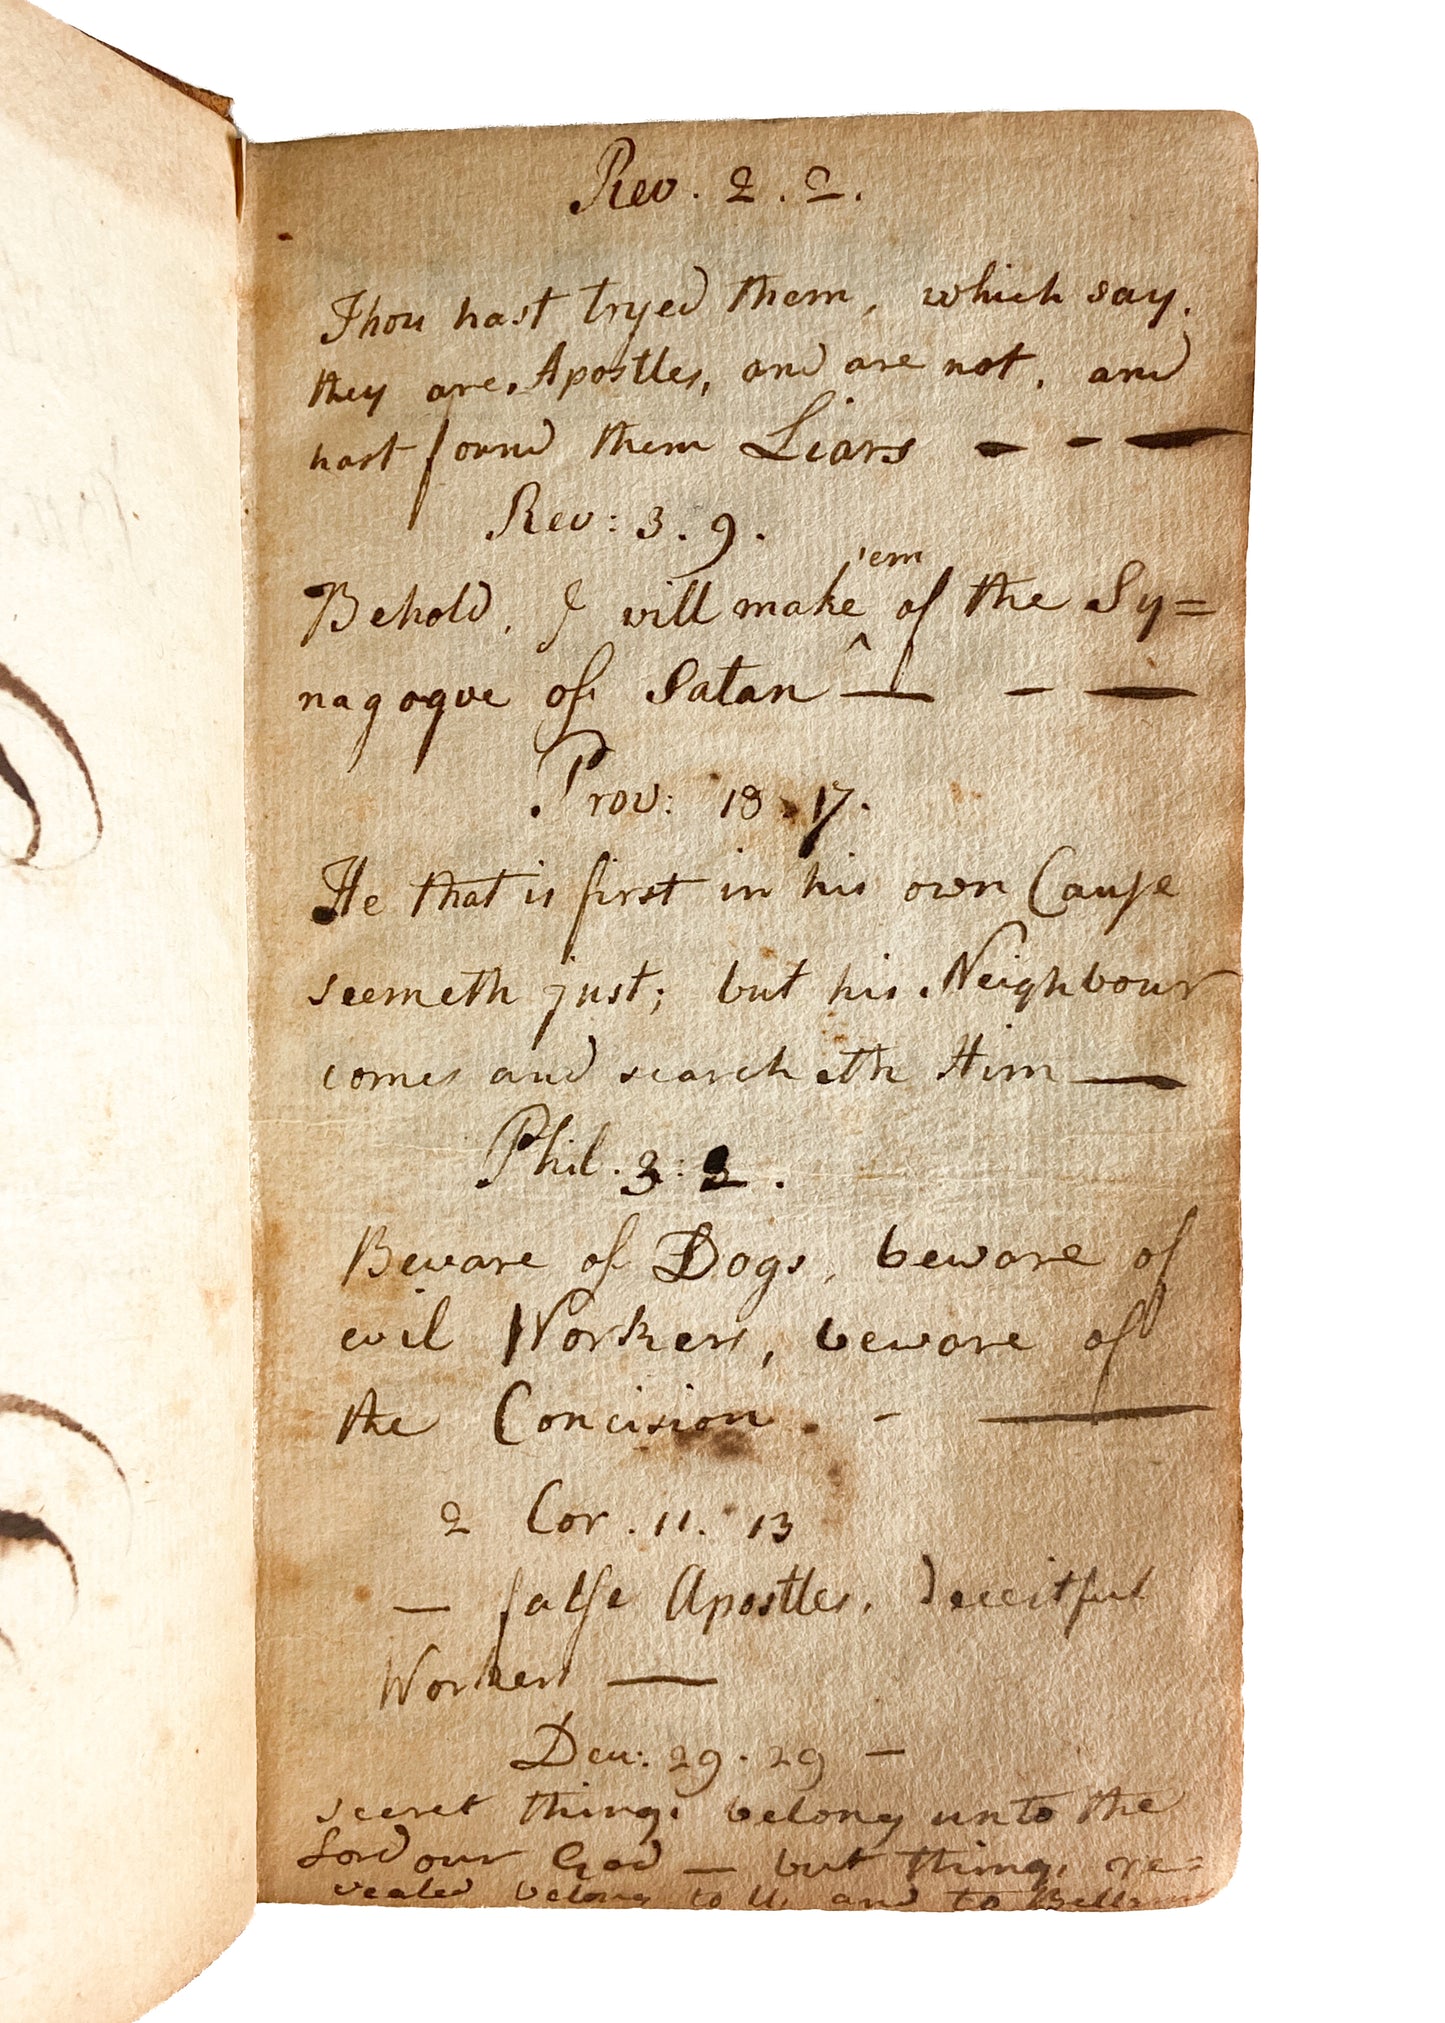 Rev. 2. 2.
Thou hast tryed them, which say,
they are Apostles, and are not, and
hast found them Liars — - —
Rev: 3. 9.
'em
Behold, I will make ^ of the Sy=
nagogue of Satan — - —
Prov: 18. 17.
He that is first in his own Cause
seemeth just; but his Neighbour
comes and searcheth Him —
Phil. 3: 2.
Beware of Dogs, beware of
evil Workers, beware of
the Concision. - —
2 Cor. 11. 13
— false Apostles, deceitful
Workers —
Deu: 29. 29 —
secret things belong unto the
Lord our God — but things re=
vealed belong to Us and to